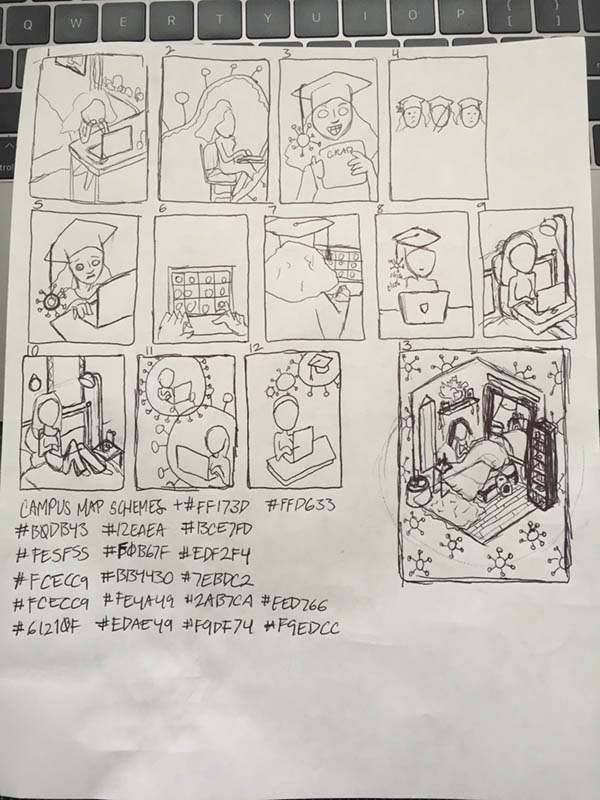 Q W E R T Y U I O P { [ } ]
1 2 3 4
GRAD
5 6 7 8 9
10 11 12 3
CAMPUS MAP SCHEMES + #FF173D #FFD633
#BQDB43 #12EAEA #13CE7FD
#FE5F55 #F0B67F #EDF2F4
#FCECC9 #BB4430 #7EBDC2
#FCECC9 #FE4A49 #2AB7CA #FED766
#61210F #EDAE49 #F9DF74 #F9EDCC